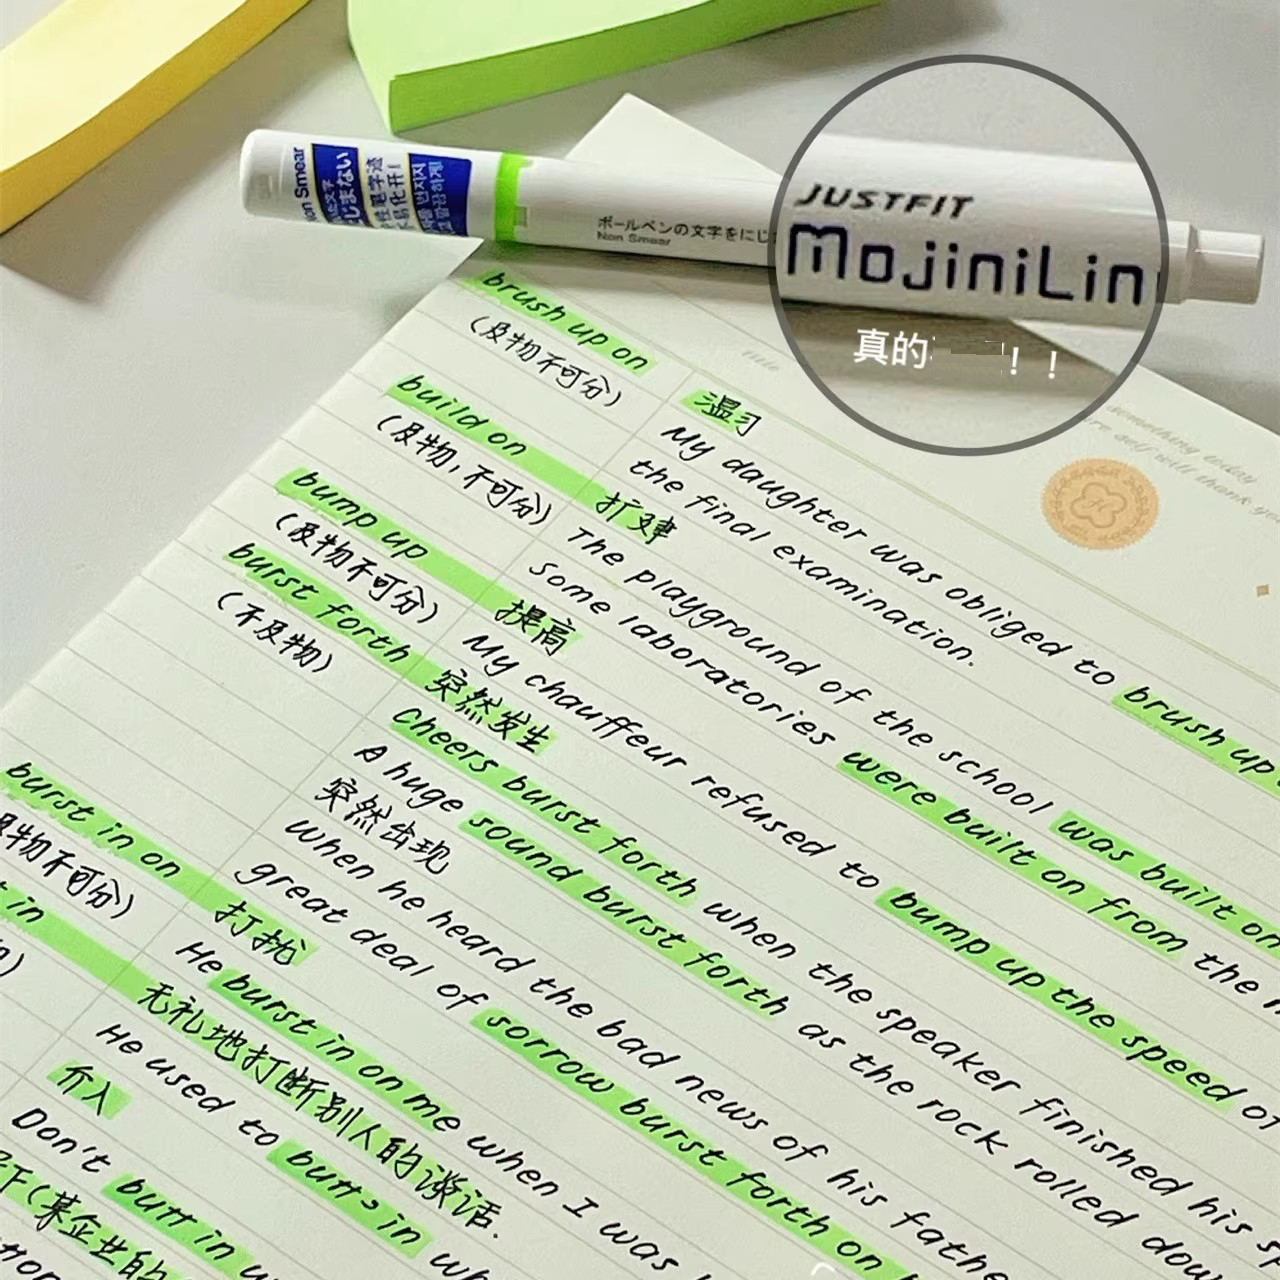 Non Smear
ボールペンの文字をにじ
Non Smear
JUSTFIT
MojiniLin
真的
！！
brush up on
(及物不可分)
温习
My daughter was obliged to brush up
the final examination.
build on
(及物,不可分)
扩建
The playground of the school was built on
some laboratories were built on from the
bump up
(及物不可分)
提高
My chauffeur refused to bump up the speed of
burst forth
(不及物)
突然发生
Cheers burst forth when the speaker finished his
A huge sound burst forth as the rock rolled down
突然出现
When he heard the bad news of his father
great deal of sorrow burst forth on
burst in on
及物不可分)
打扰
He burst in on me when I was
in
无礼地打断别人的谈话.
He used to butts in
介入
Don't butt in
(某企业的